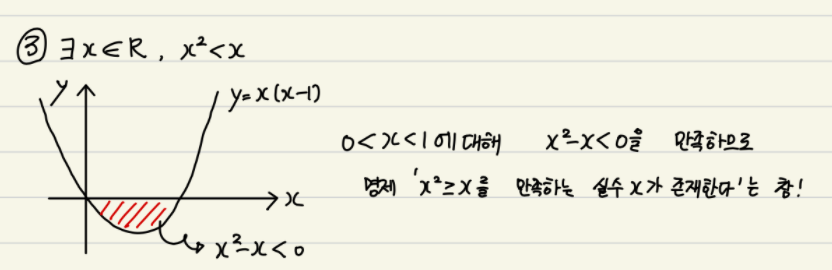 ③ ∃x∈R, x²<x
y
y=x(x-1)
0<x<1에 대해 x²-x<0을 만족하므로
명제 'x²≥x를 만족하는 실수 x가 존재한다'는 참!
x
x²-x<0